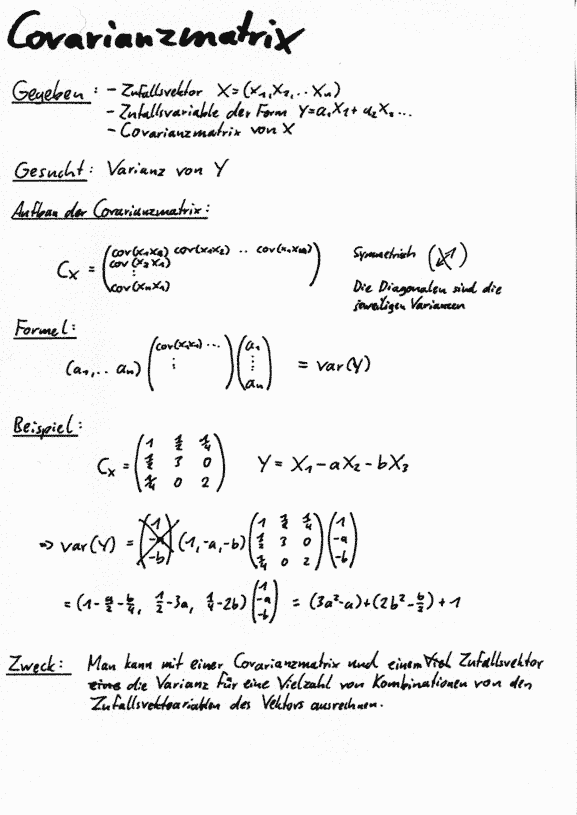 Covarianzmatrix
Gegeben: - Zufallsvektor X=(X₁,X₂,..Xₙ)
- Zufallsvariable der Form Y=a₁X₁+a₂X₂...
- Covarianzmatrix von X
Gesucht: Varianz von Y
Aufbau der Covarianzmatrix:
Cₓ = ( cov(x₁x₁) cov(x₁x₂) .. cov(x₁xₙ)
cov(x₂x₁)
⋮
cov(xₙx₁) )
Symmetrisch
Die Diagonalen sind die
jeweiligen Varianzen
Formel:
(a₁,.. aₙ) ( cov(x₁x₁) ... ⋮ ) ( a₁ ⋮ aₙ ) = var(Y)
Beispiel:
Cₓ = ( 1 1/2 1/4
1/2 3 0
1/4 0 2 ) Y = X₁-aX₂-bX₃
⇒ var(Y) = (1,-a,-b) ( 1 1/2 1/4
1/2 3 0
1/4 0 2 ) ( 1 -a -b )
= (1-a/2-b/4, 1/2-3a, 1/4-2b) ( 1 -a -b ) = (3a²-a)+(2b²-b/2)+1
Zweck: Man kann mit einer Covarianzmatrix und einem Zufallsvektor
die Varianz für eine Vielzahl von Kombinationen von den
Zufallsvariablen des Vektors ausrechnen.